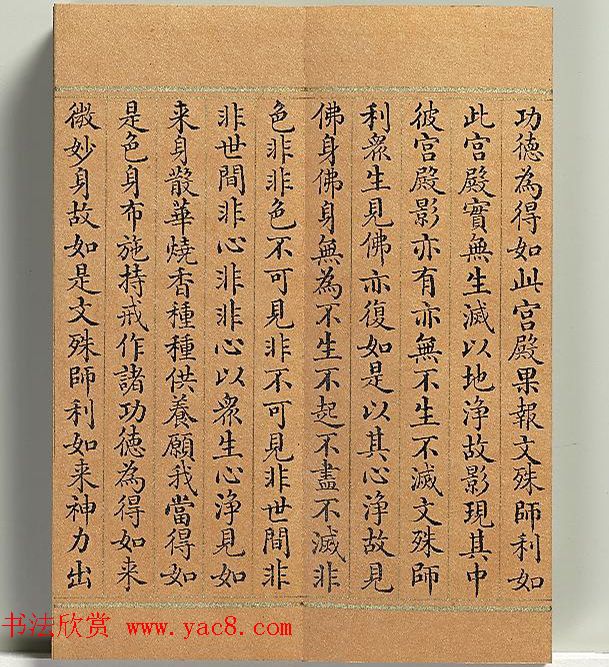 功德為得如此宮殿果報文殊師利如
此宮殿實無生滅以地淨故影現其中
彼宮殿影亦有亦無不生不滅文殊師
利眾生見佛亦復如是以其心淨故見
佛身佛身無為不生不起不盡不滅非
色非非色不可見非不可見非世間非
非世間非心非非心以眾生心淨見如
来身散華燒香種種供養願我當得如
是色身布施持戒作諸功德為得如来
微妙身故如是文殊師利如来神力出
书法欣赏 www.yac8.com